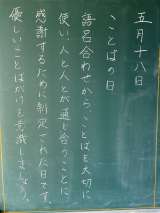 五月十八日
ことばの日
語呂合わせからことばを大切に
使い、人と人とが通じ合うことに
感謝するために制定された日です。
優しいことばがけを意識しましょう。